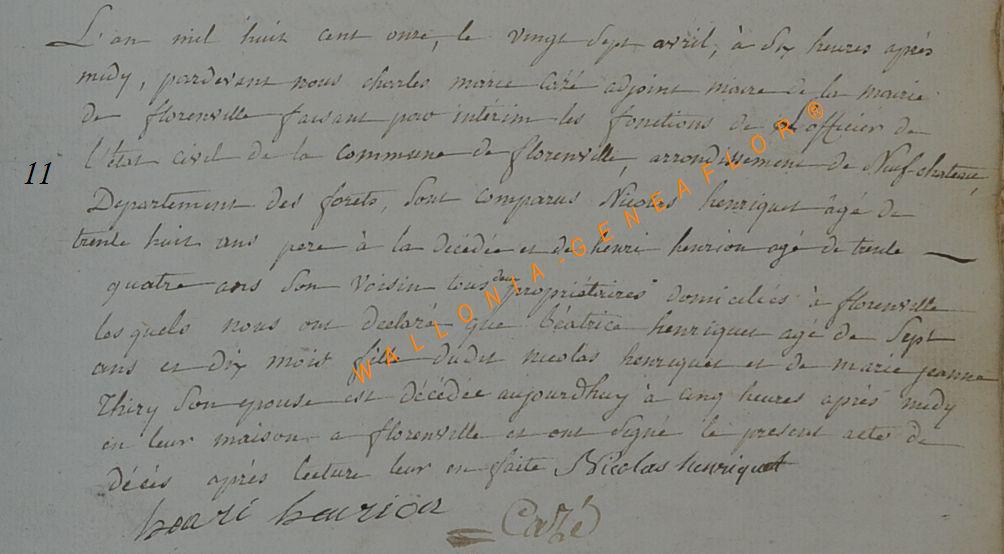 L'an mil huit cent onze, le vingt sept avril, à six heures après
midy, pardevant nous charles marie Cazé adjoint maire de la mairie
de florenville faisant par intérim les fonctions de officier de
l'état civil de la commune de florenville, arrondissement de Neufchateau,
Departement des forêts, sont comparus Nicolas henriquet âgé de
trente huit ans pere à la décédée et de henri henrion agé de trente
quatre ans son voisin tous deux propriétaires domiciliés à florenville
lesquels nous ont declaré que béatrice henriquet agé de sept
ans et dix mois fille dudit nicolas henriquet et de marie jeanne
Thiry son epouse est décédée aujourdhuy à cinq heures après midy
en leur maison a florenville et ont signé le present acte de
décés après lecture leur en faite Nicolas henriquet
henri henrion Cazé
11
WALLONIA-GENEAFLOR®